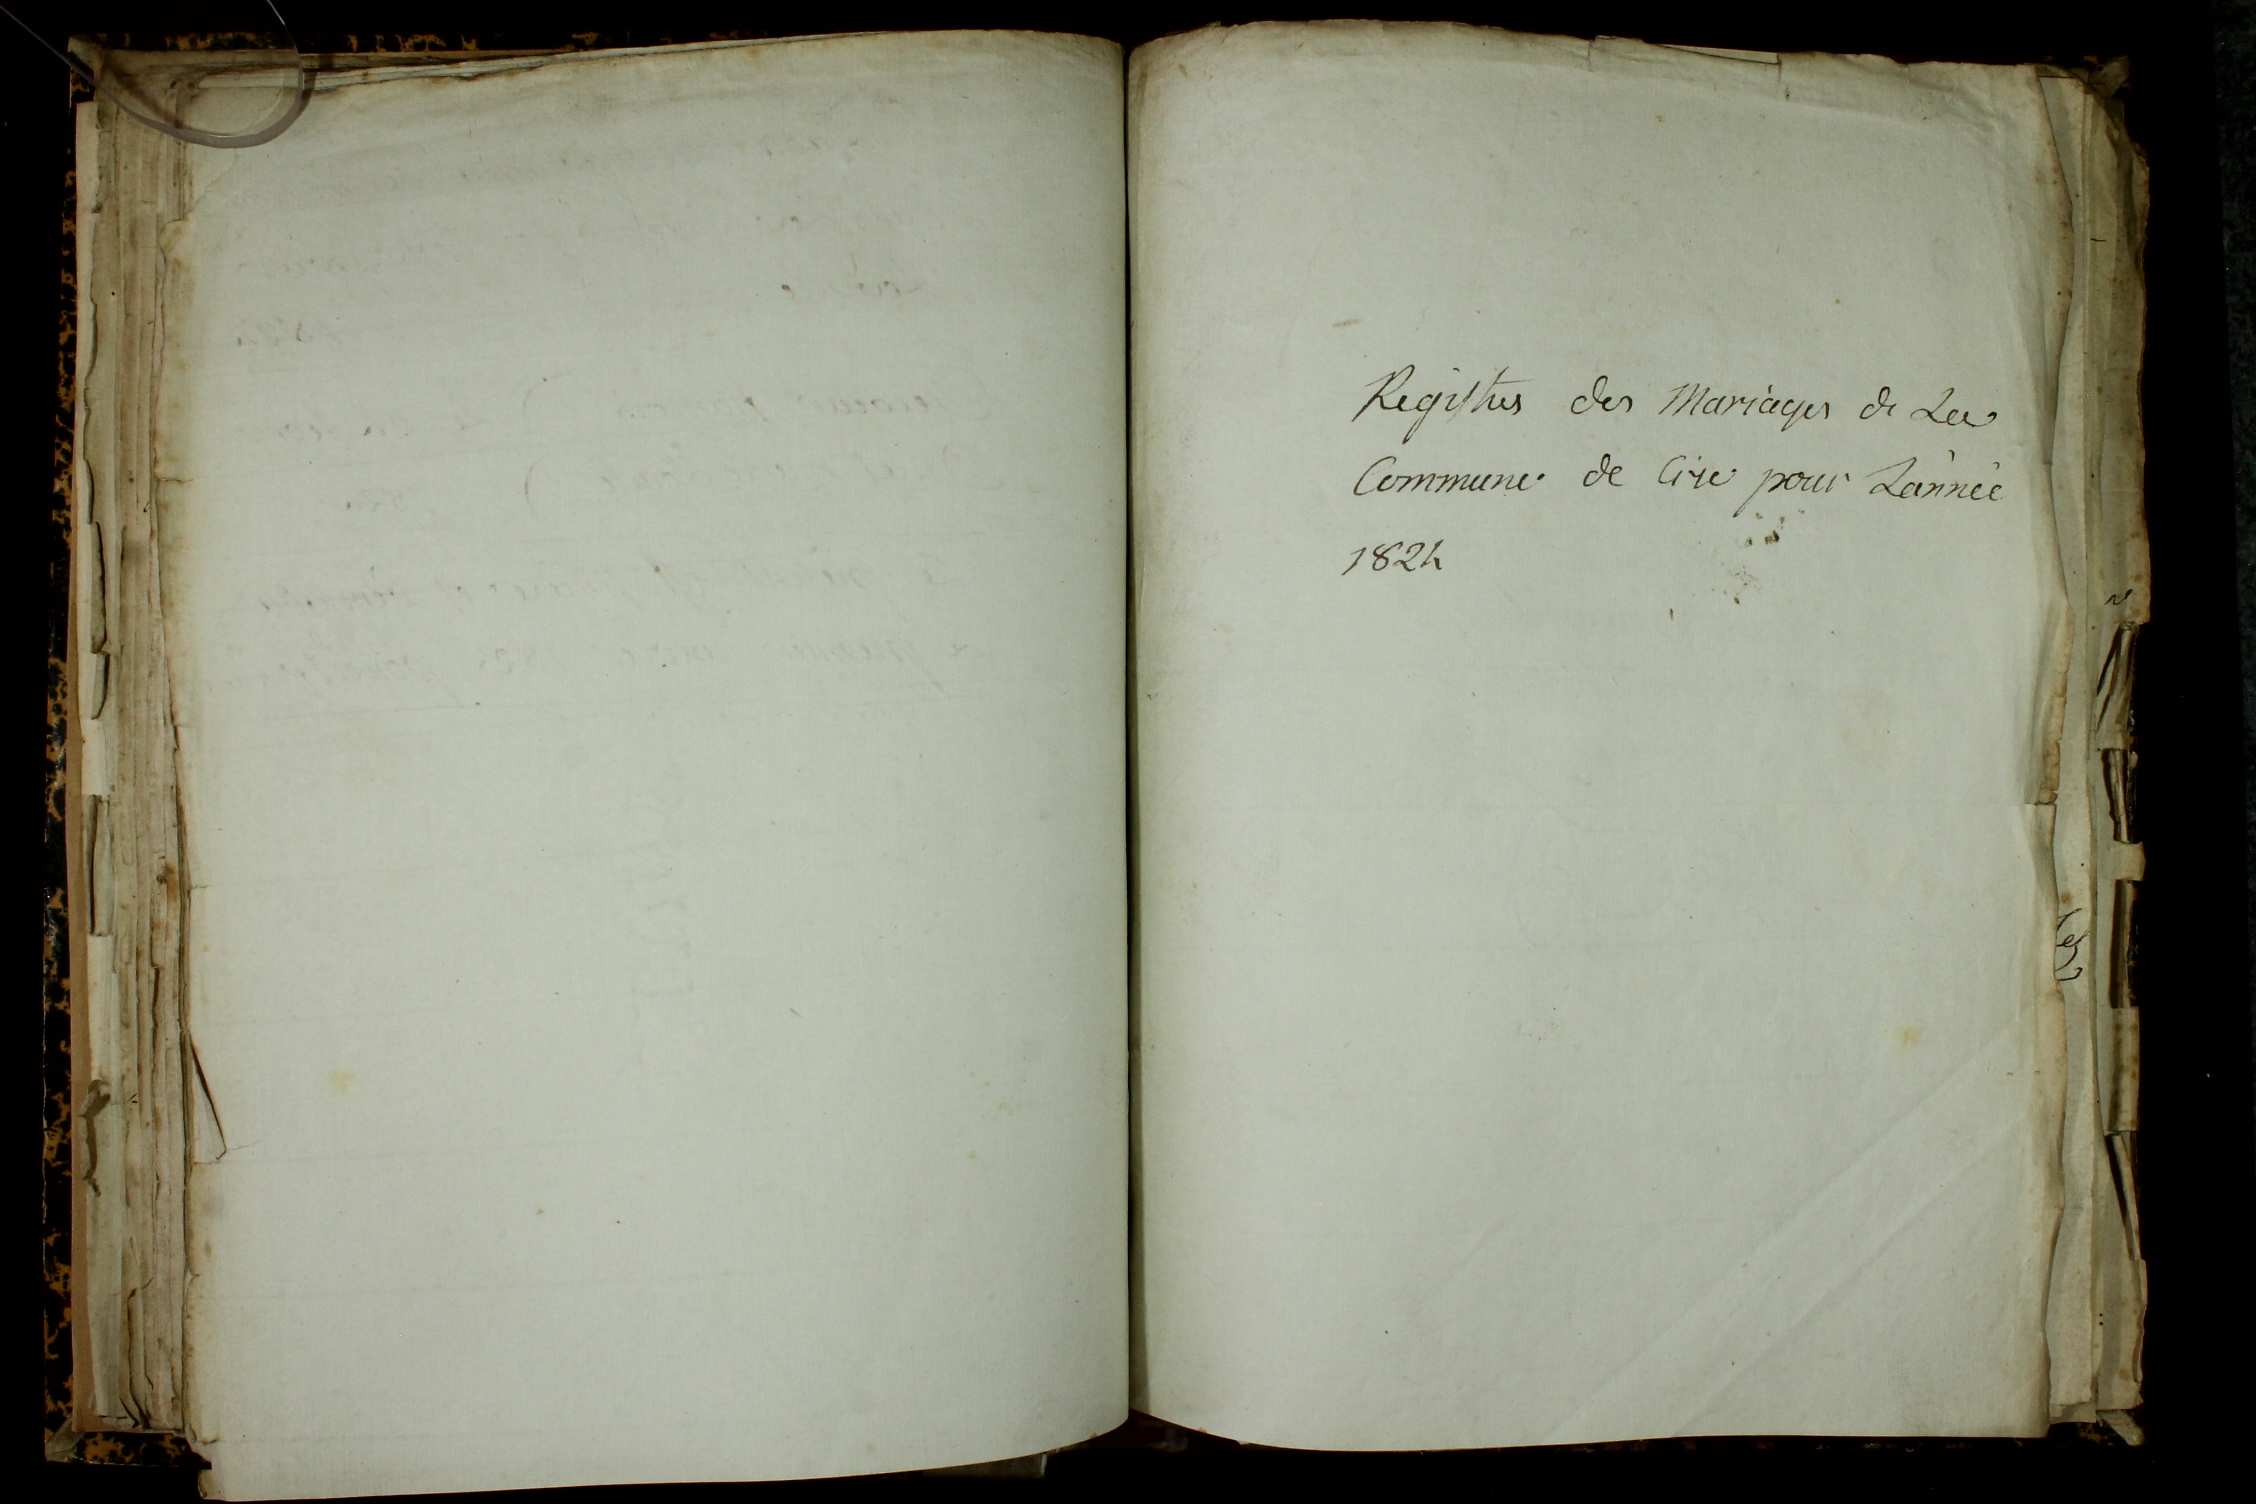 Registres des Mariages de La
Commune de Cire pour L'année
1824